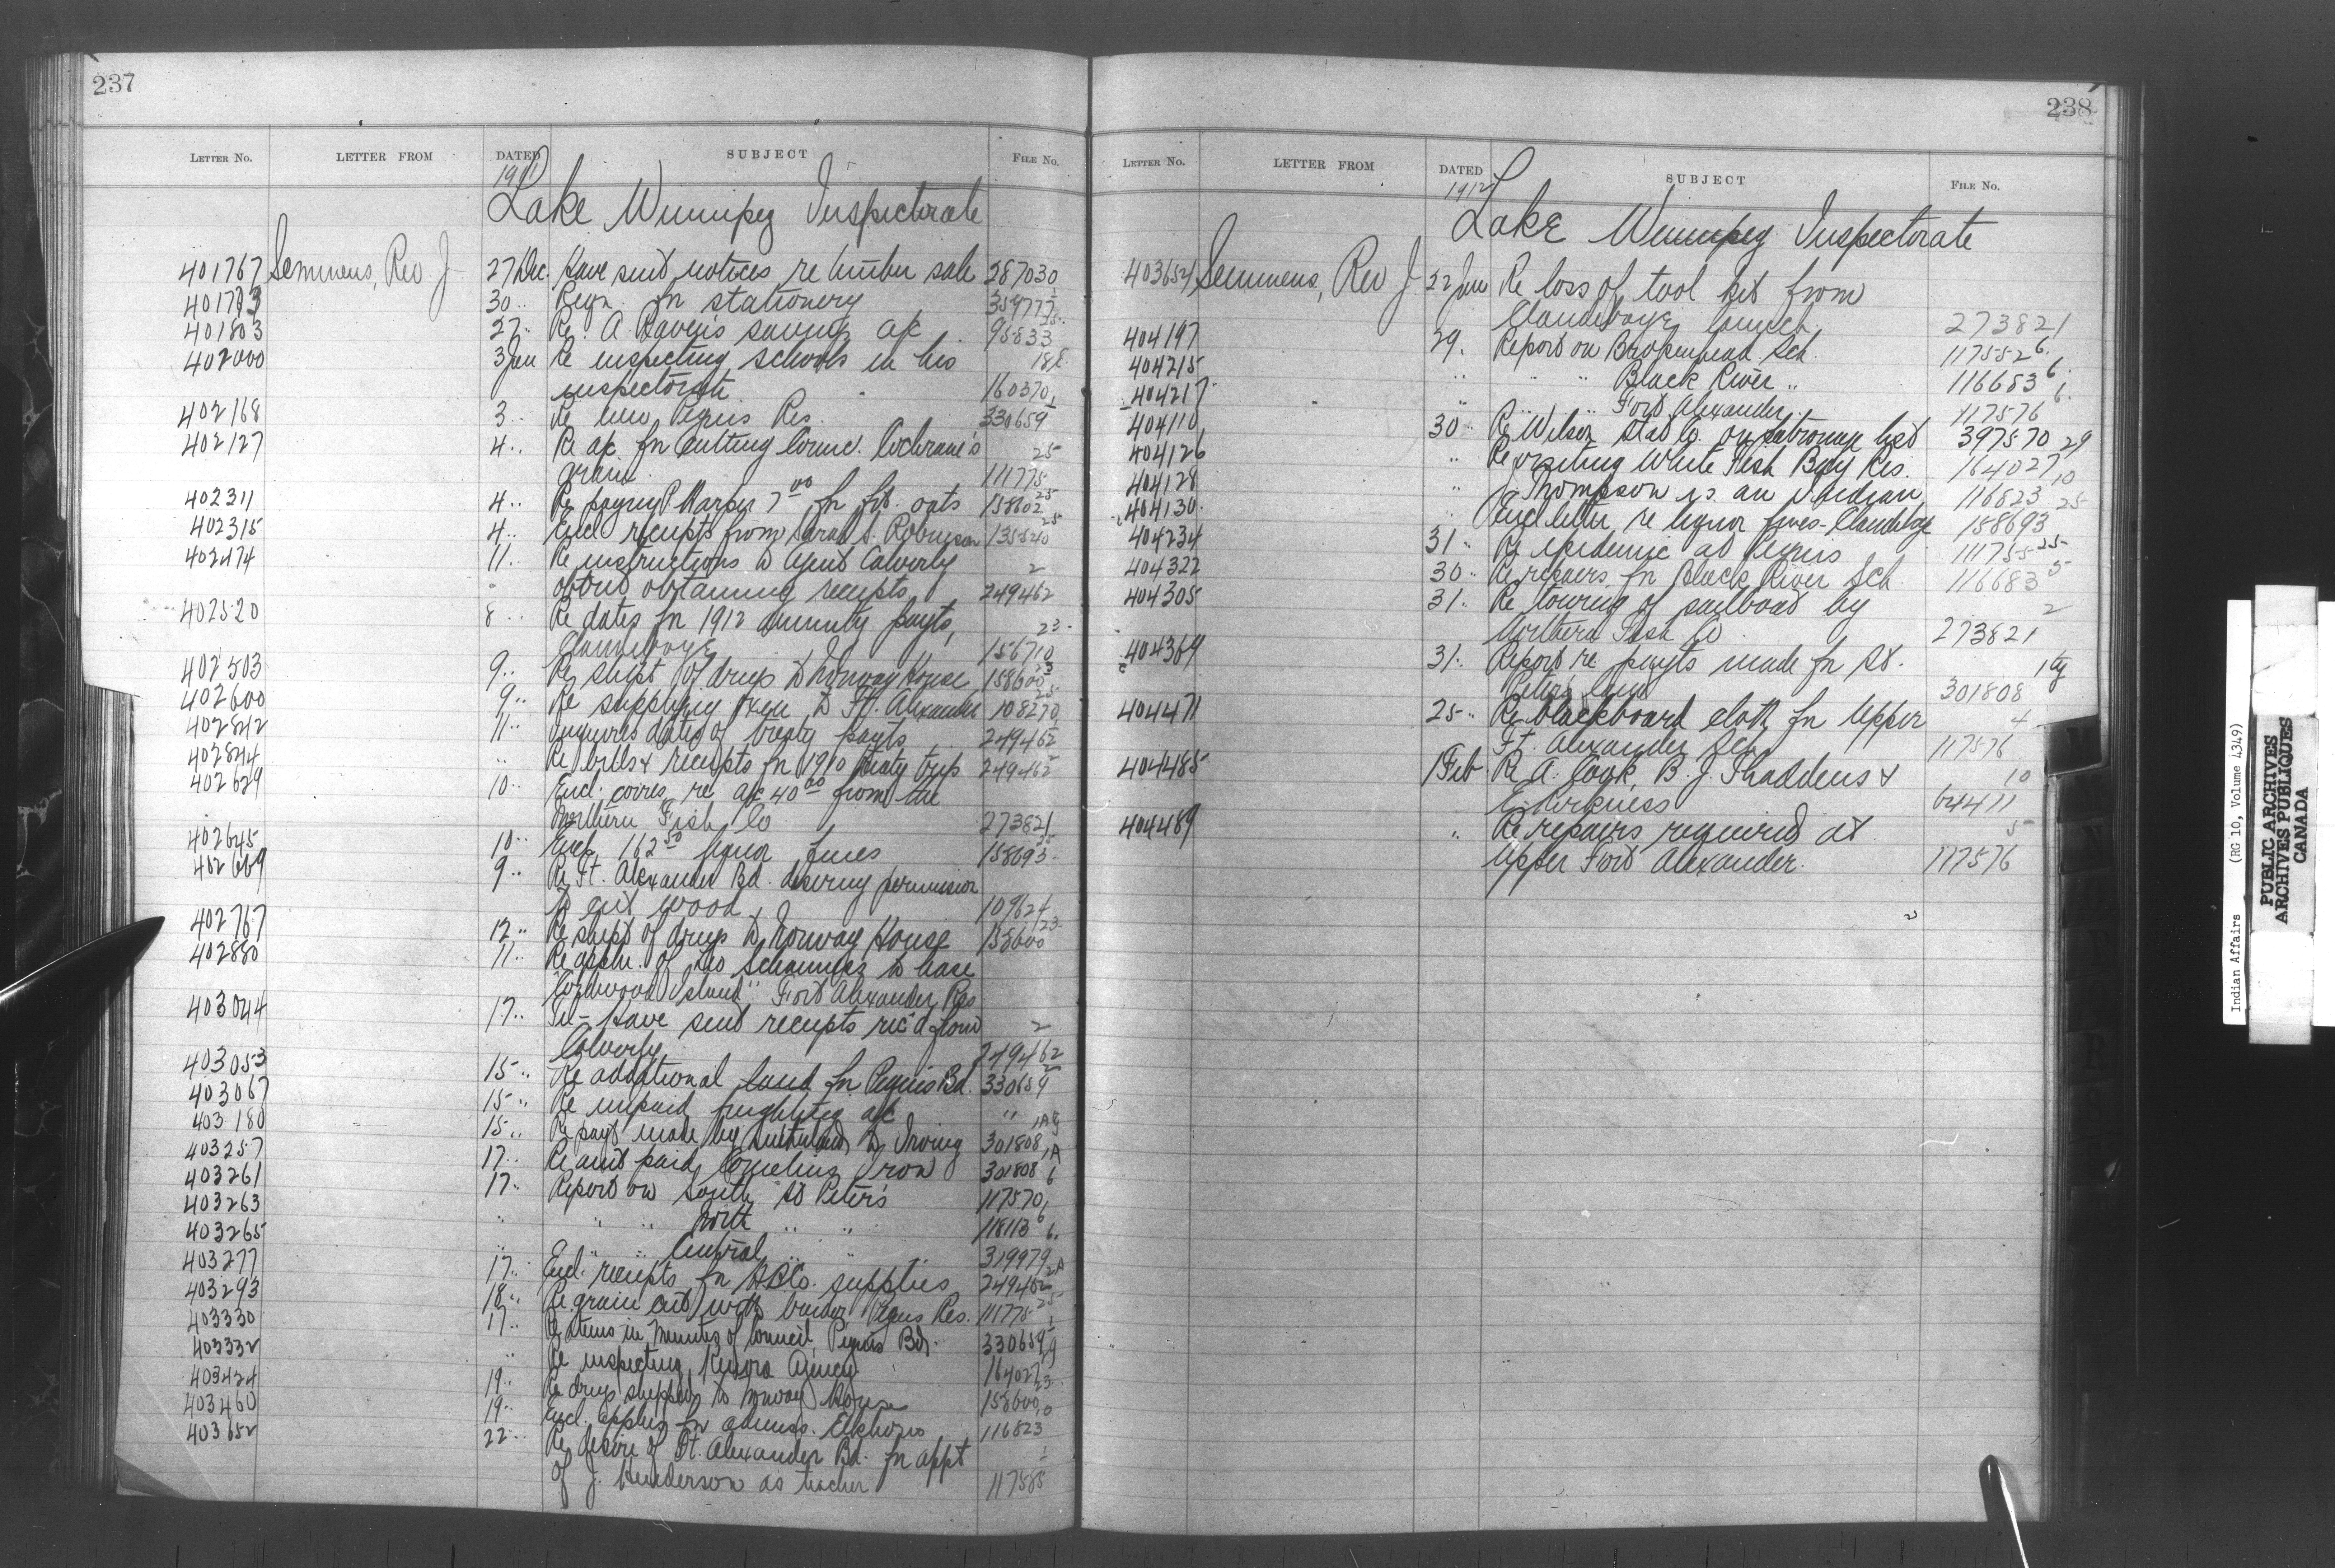 237
LETTER NO. LETTER FROM DATED SUBJECT FILE NO.
1911
Lake Winnipeg Inspectorate
401767 Semmens, Rev J 27 Dec. Have sent notices re timber sale 287030
401773 30 .. Reqn. for stationery 354777 1
401803 27 .. Re A. Raven's saving a/c 95833 25
402000 3 Jan Re inspecting schools in his 18E
inspectorate 160370
402168 3 .. Re new Peguis Res. 330659 1
402127 4 .. Re a/c for cutting Counc. Cochrane's 25
grain 111775
402311 4 .. Re paying P. Harper 7 00 for oats 158602 25
402315 4 .. Encl. receipts from Sarah S. Robinson 135520 25
402474 11 .. Re instructions to Agent Calverly 2
obtaining receipts 249462
402520 8 .. Re dates for 1912 annuity payts, 23
Clandeboye 156710
402503 9 .. Re shipt of drugs to Norway House 158600 23
402600 9 .. Re supplying oxen to Ft. Alexander 108270 25
402842 11 .. Inquires dates of treaty payts 249462
402844 .. Re bills & receipts for 1910 treaty trip 249462
402629 10 .. Encl. corres. re a/c 40 00 from the
Northern Fish Co 273821
402645 10 .. Encl. 162 50 liquor fines 158693 25
402669 9 .. Re Ft. Alexander Bd. desiring permission
to cut wood 109624
402767 12 .. Re shipt of drugs to Norway House 158600 23
402880 11 .. Re appln. of to lease
"Cordwood Island" Fort Alexander Res
403044 17 .. Tel - Have sent receipts rec'd from 2
Calverly 249462
403053 15 .. Re additional land for Peguis Bd. 330659 1
403067 15 .. Re unpaid freighting a/c "
403180 15 .. Re payt made by Sutherland to Irving 301808 1Ag
403257 17 .. Re amt paid Cornelius Iron 301808 1A
403261 17 .. Report on South St Peter's 117570 6
403263 .. .. .. North .. .. 118113 6
403265 .. .. .. Central .. .. 319979 6
403277 17 .. Encl. receipts for H.B.Co. supplies 249462 2A
403293 18 .. Re grain cut with binder, Peguis Res. 111775 25
403330 17 .. Re items in minutes of Council, Peguis Bd. 330659 1
403332 .. Re inspecting Kenora Agency 164027 29
403424 19 .. Re drugs shipped to Norway House 158600 23
403460 19 .. Encl. applns for admiss. Elkhorn 116823 10
403652 22 .. Re desire of Ft. Alexander Bd. for appt 1
of J. Henderson as teacher 117585
238
LETTER NO. LETTER FROM DATED SUBJECT FILE NO.
1912
Lake Winnipeg Inspectorate
403654 Semmens, Rev J. 22 Jan Re loss of tool kit from
Clandeboye launch 273821
404197 29. Report on Brokenhead Sch. 117552 6.
404215 .. .. .. Black River .. 116683 6
404217 .. .. .. Fort Alexander 117576 6.
404110 30 .. Re Wilson Stat Co. on patronage list 397570 29
404126 .. Re visiting White Fish Bay Res. 164027
404128 .. J. Thompson is an Indian 116823 10
404130 .. Encl letter re liquor fines - Clandeboye 158693 25
404234 31 .. Re epidemic at Peguis 111755 25
404322 30 .. Re repairs for Black River Sch. 116683 5
404305 31 .. Re towing of sailboat by 2
Northern Fish Co 273821
404369 31 .. Report re payts made for St. 1Ag
Peter's land 301808
404471 25 .. Re blackboard cloth for Upper 4
Ft. Alexander Sch. 117576
404485 1 Feb Re A. Cook, B. J. Thaddeus & 10
E. Kirkness 64411
404489 .. Re repairs required at 5
Upper Fort Alexander. 117576
Indian Affairs (RG 10, Volume 4349)
PUBLIC ARCHIVES
ARCHIVES PUBLIQUES
CANADA